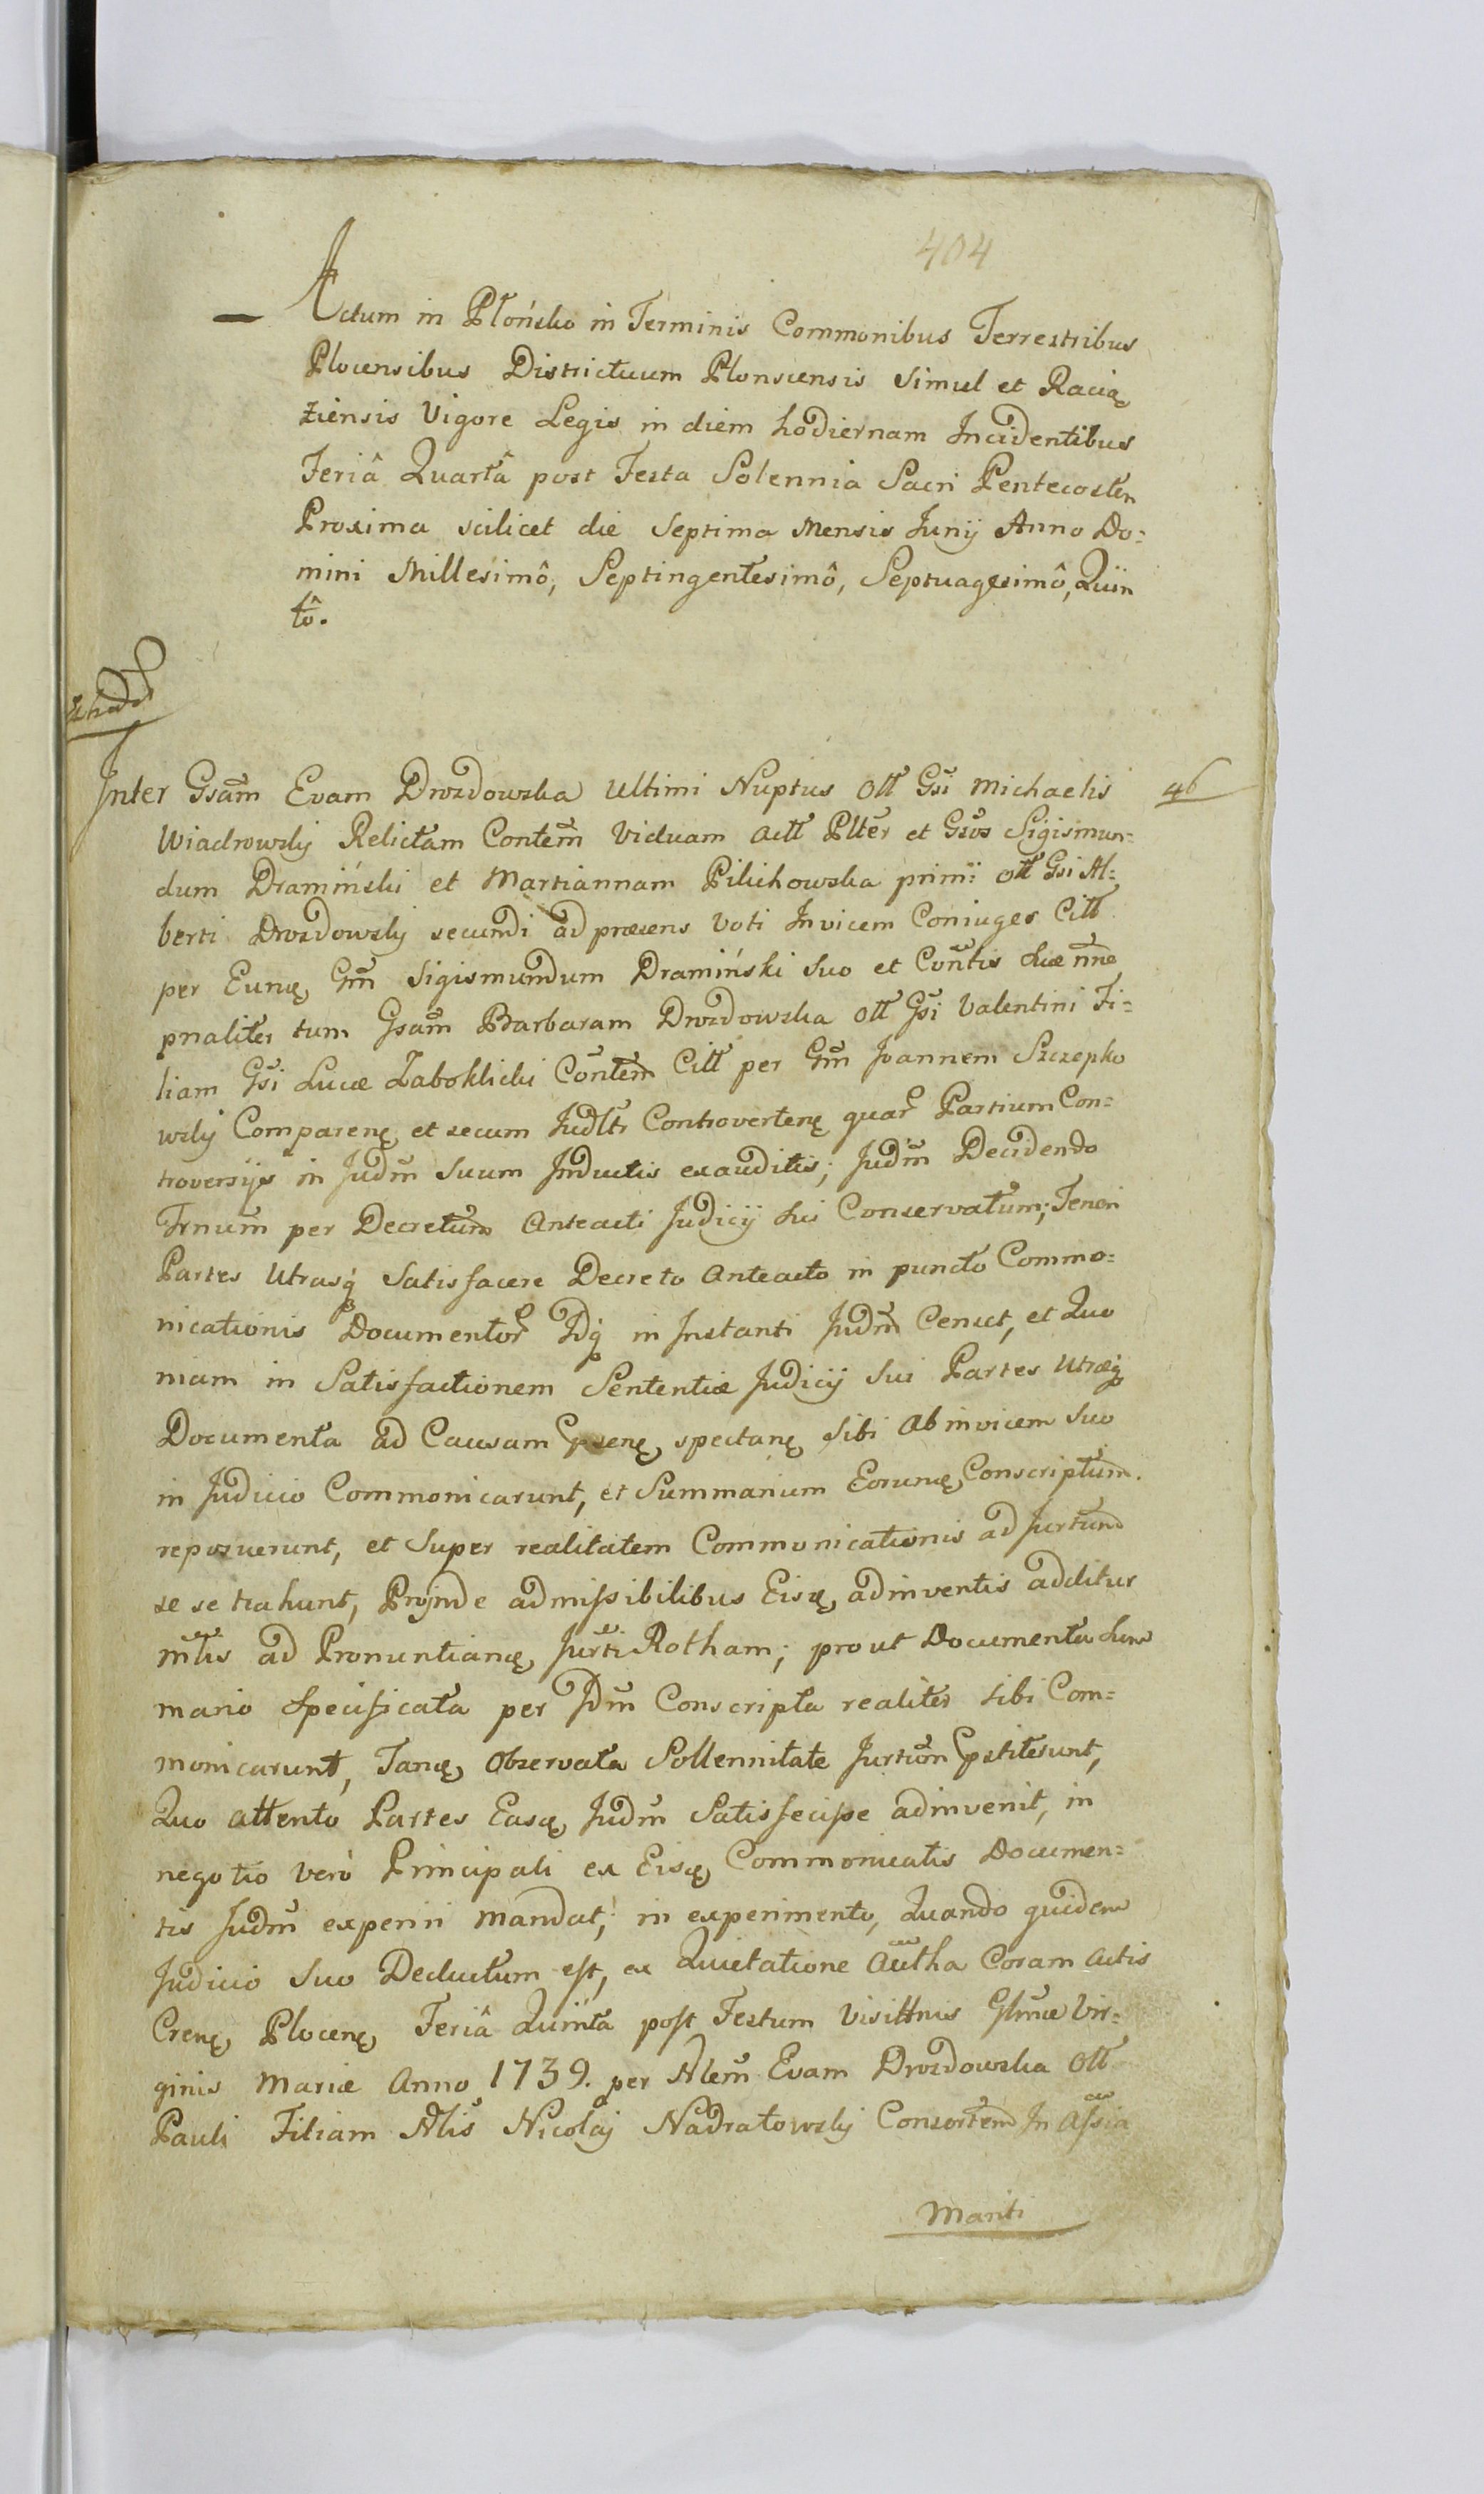 404
Actum in Płońsko in Terminis Commonibus Terrestribus
Plocensibus Districtuum Plonscensis simul et Racią
żiensis Vigore Legis in diem hodiernam Incidentibus
Feriâ Quartâ post Festa Solennia Sacri Pentecosten
Proxima scilicet die Septima Mensis Junij Anno Do:
mini Millesimô, Septingentesimô, Septuagesimô, Quin
tô.
Inter Gsam̃ Evam Drozdowska Ultimi Nuptus Oll Gsi Michaelis 46
Wiadrowskij Relictam Contem̃ Viduam actt Plter et Gsos Sigismun=
dum Dramiński et Martiannam Pilichowska primi: oll Gsi Al=
berti Drozdowskij secundi ad præsens Voti Invicem Coniuges Citt
per Eunę Gm̃ Sigismundum Dramiński Suo et Cõntis suæ nñe
pnaliter tum Gsam̃ Barbaram Drozdowska Oll Gsi Valentini Fi=
liam Gsi Lucæ Zaboklicki Cõntem Citt per Gm̃ Joannem Szczepko
wskij Comparenę et secum Judltr Controvertenę quar Partium Con=
troversijs in Judm̃ Suum Inductis exauditis; Judm̃ Decidendo
Trnum̃ per Decretum Anteacti Judicij Sui Conservatum; Teneri
Partes Utrasq̃ Satisfacere Decreto Anteacto in puncto Commo=
nicationis Documentor Idq̃ in Instanti Judm̃ Censet, et Quo
niam in Satisfactionem Sententiæ Judicij Sui Partes Utræq̃
Documenta ad Causam psenę spectanę sibi Ab invicem Suo
in Judicio Commonicarunt, et Summarium Eorunę Conscriptum.
reposuerunt, et Super realitatem Commonicationis ad Jurtum
se se trahunt, Projnde admissibilibus Eisę adinventis additur
mltis ad Pronuntianę Jurti Rotham; prout Documenta Sum
mario Specificata per Idm̃ Conscripta realiter sibi Com=
monicarunt, Tanę Observata Sollennitate Jurtum̃ pstiterunt,
Quo attento Partes Easę Judm̃ Satisfecisse adinvenit, in
negotio verò Principali ex Eisę Commonicatis Documen=
tis Judm̃ experiri mandat; in experimento, Quando quidem
Judicio Suo Deductum est, ex Quietatione Autha Coram Actis
Crenę Plocenę Feriâ Quinta post Festum Visittnis Glmæ Vir=
ginis Mariæ Anno 1739. per Nlem̃ Evam Drozdowska Oll
Pauli Filiam Nlis Nicolaj Nadratowskij Consortem In Assia
Mariti